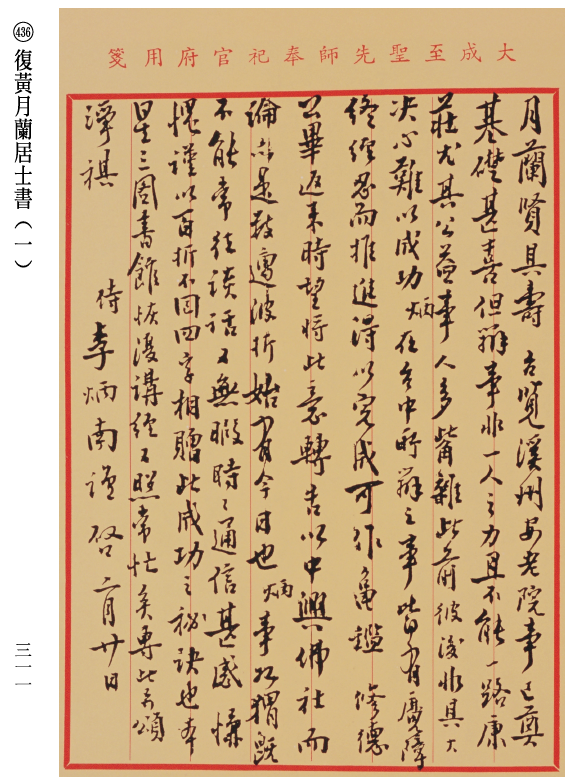 436 復黃月蘭居士書（一）
大成至聖先師奉祀官府用箋
月蘭賢具壽 台覽溪州安老院事已奠
基礎甚喜但辦事非一人之力且不能一路康
莊尤其公益事人多嘴雜此前彼後非具大
決心難以成功炳在台中所辦之事皆有魔障
終經忍而推進得以完成可作龜鑑 修德
公畢返来時望将此意轉告以中興佛社而
論亦是數遭波折始有今日也炳事如猬既
不能常往談話又無暇時々通信甚感慚
愧謹以百折不回四字相贈此成功之秘訣也本
星三周書館恢復講經又照常忙矣專此 頌
潭祺 侍李炳南謹啓 二月廿日
三一一